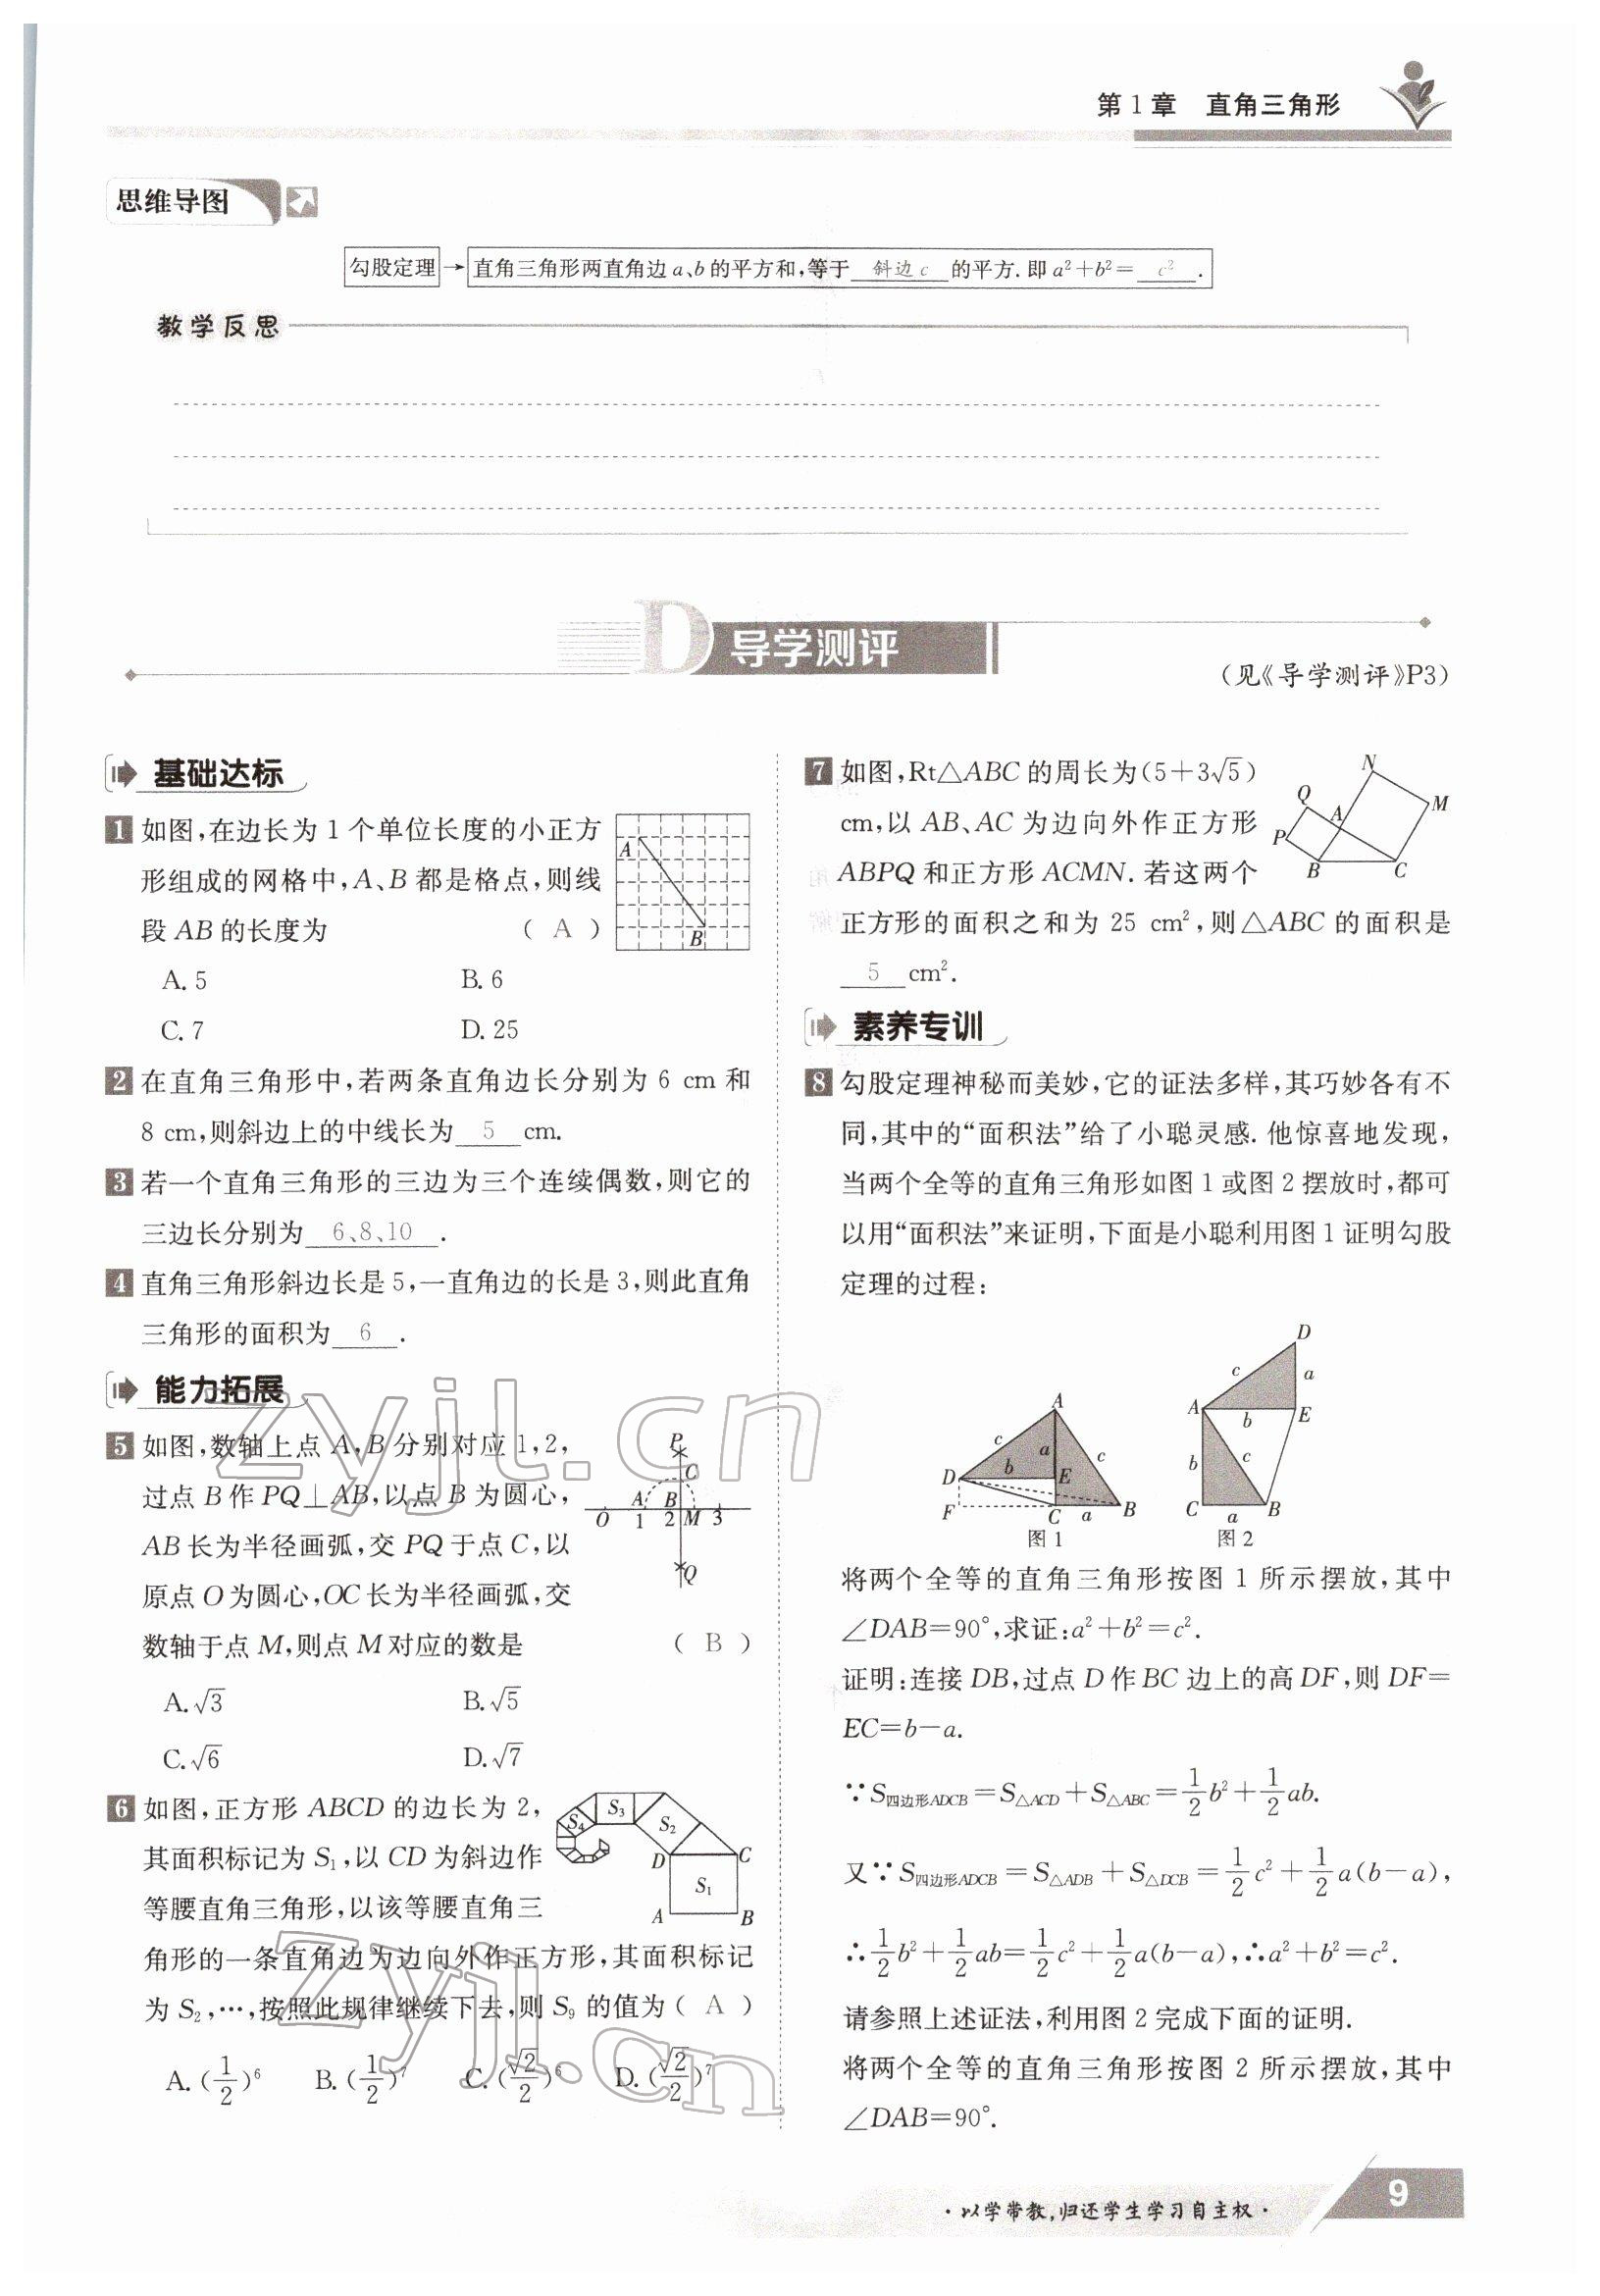 第1章 直角三角形
思维导图
勾股定理→直角三角形两直角边a、b的平方和,等于 斜边c 的平方.即a²+b²= c² .
教学反思
D 导学测评
(见《导学测评》P3)
基础达标
1 如图,在边长为1个单位长度的小正方
形组成的网格中,A、B都是格点,则线
段AB的长度为 ( A )
A
B
A. 5 B. 6
C. 7 D. 25
2 在直角三角形中,若两条直角边长分别为6 cm和
8 cm,则斜边上的中线长为 5 cm.
3 若一个直角三角形的三边为三个连续偶数,则它的
三边长分别为 6、8、10 .
4 直角三角形斜边长是5,一直角边的长是3,则此直角
三角形的面积为 6 .
能力拓展
5 如图,数轴上点A,B分别对应1,2,
过点B作PQ⊥AB,以点B为圆心,
AB长为半径画弧,交PQ于点C,以
原点O为圆心,OC长为半径画弧,交
数轴于点M,则点M对应的数是 ( B )
P
C
A B
O 1 2 M 3
Q
A.√3 B.√5
C.√6 D.√7
6 如图,正方形ABCD的边长为2,
其面积标记为S₁,以CD为斜边作
等腰直角三角形,以该等腰直角三
角形的一条直角边为边向外作正方形,其面积标记
为S₂,…,按照此规律继续下去,则S₉的值为( A )
S₄ S₃ S₂
D C
S₁
A B
A. (1/2)⁶ B. (1/2)⁷ C. (√2/2)⁶ D. (√2/2)⁷
7 如图,Rt△ABC的周长为(5+3√5)
cm,以AB、AC为边向外作正方形
ABPQ和正方形ACMN.若这两个
正方形的面积之和为25 cm²,则△ABC的面积是
5 cm².
N
Q M
A
P
B C
素养专训
8 勾股定理神秘而美妙,它的证法多样,其巧妙各有不
同,其中的“面积法”给了小聪灵感.他惊喜地发现,
当两个全等的直角三角形如图1或图2摆放时,都可
以用“面积法”来证明,下面是小聪利用图1证明勾股
定理的过程:
A
c a c
D b E
F C a B
图1
D
c a
A b E
b c
C a B
图2
将两个全等的直角三角形按图1所示摆放,其中
∠DAB=90°,求证:a²+b²=c².
证明:连接DB,过点D作BC边上的高DF,则DF=
EC=b-a.
∵S四边形ADCB=S△ACD+S△ABC=1/2b²+1/2ab.
又∵S四边形ADCB=S△ADB+S△DCB=1/2c²+1/2a(b-a),
∴1/2b²+1/2ab=1/2c²+1/2a(b-a),∴a²+b²=c².
请参照上述证法,利用图2完成下面的证明.
将两个全等的直角三角形按图2所示摆放,其中
∠DAB=90°.
·以学带教,归还学生学习自主权·
9
zyjl.cn
zyjl.cn